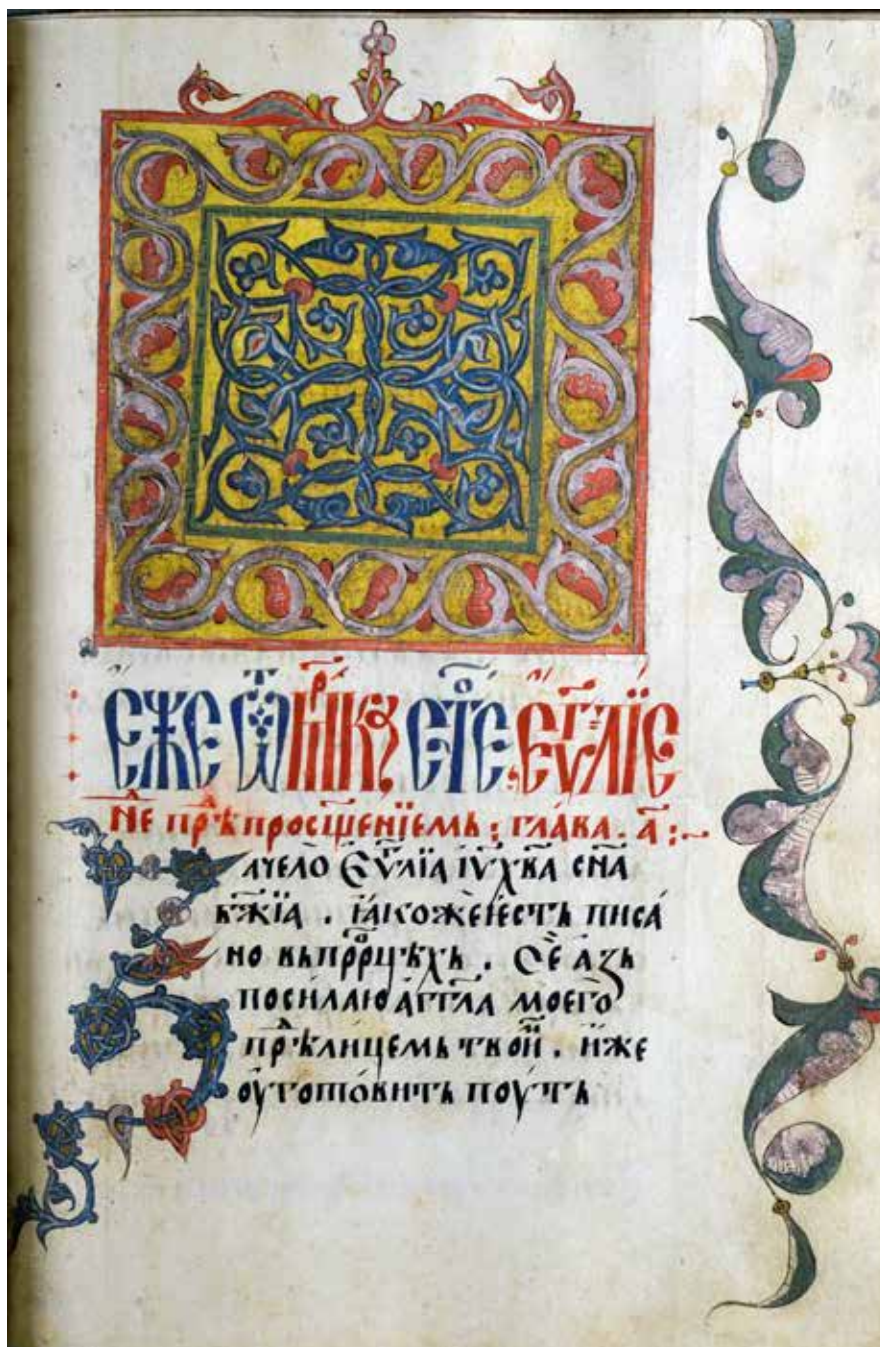 еже ѿ мⷬ҇кꙋ ст҃ое еѵⷢ҇лїе
не пⷣрѣ просщенїемь : глава . а҃ :~
ачело еѵⷢ҇лїа іѵ҃ хв҃а сн҃а
бж҃їа . ꙗкоже ѥсть писа
но вь прⷪ҇рцѣхь . се азь
посилаю аггⷧ҇ла моего
прⷣѣ лицемь твоиⷨ . иже
оуготовить поуть